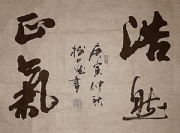 浩然
正氣
庚寅仲秋